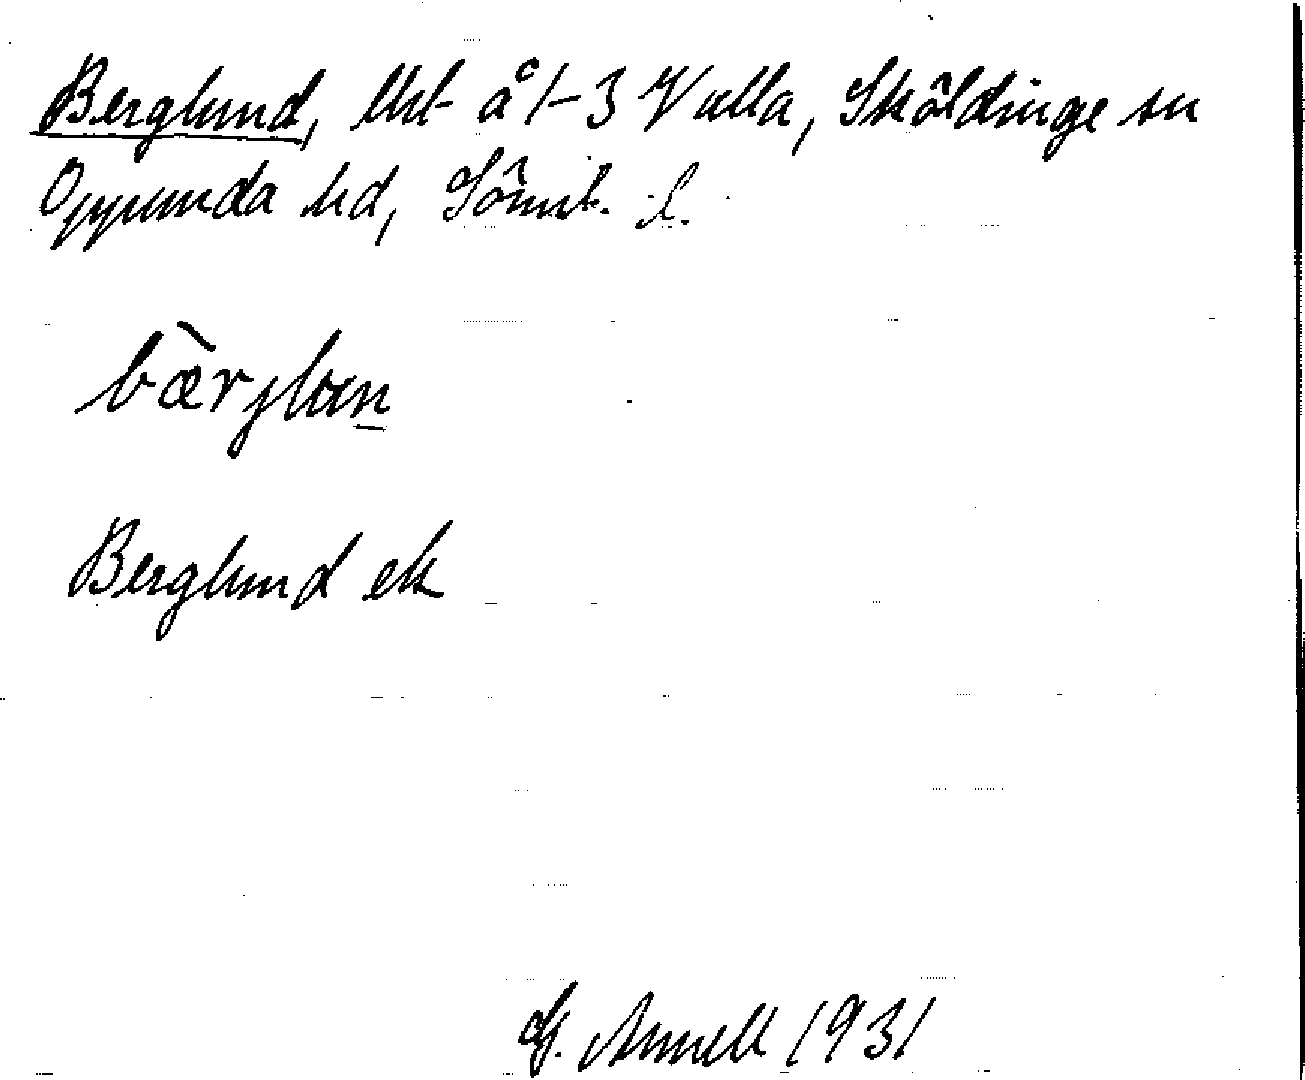 Berglund, lht å 1-3 Valla, Sköldinge sn
Oppunda hd, Sömt. l.
bæ̀rjlɷn
Berglund ek
G. Annell 1931